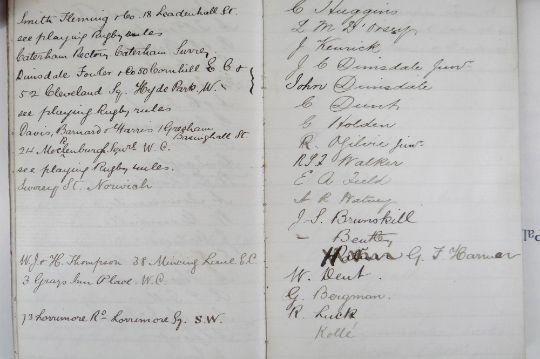 Smith Fleming & Co. 18 Leadenhall St.
see playing Rugby rules
Caterham Rectory Caterham Surrey
Dimsdale Fowler & Co 50 Cornhill E C &
52 Cleveland Sq. Hyde Park. W.
see playing Rugby rules
Davis, Barnard & Harris 1 Gresham
Basinghall St
24 Mecklenburgh Sqre W.C.
see playing Rugby rules.
St. Norwich
W. J. & H. Thompson 38 Mincing Lane E.C.
3 Grays Inn Place W.C.
73 Lorrimore Rd Lorrimore Sq. S.W.
C Huggins
L M D'Orsey
J Kenrick
J C Dimsdale Junr
John Dimsdale
C Dunt
C Holden
R. Ogilvie Junr
Walker
E A Field
A R Watney
J. S. Brunskill
Bentley
G F Harmer
W. Dent.
G. Bergman.
R. Luck
Kollé
Pal